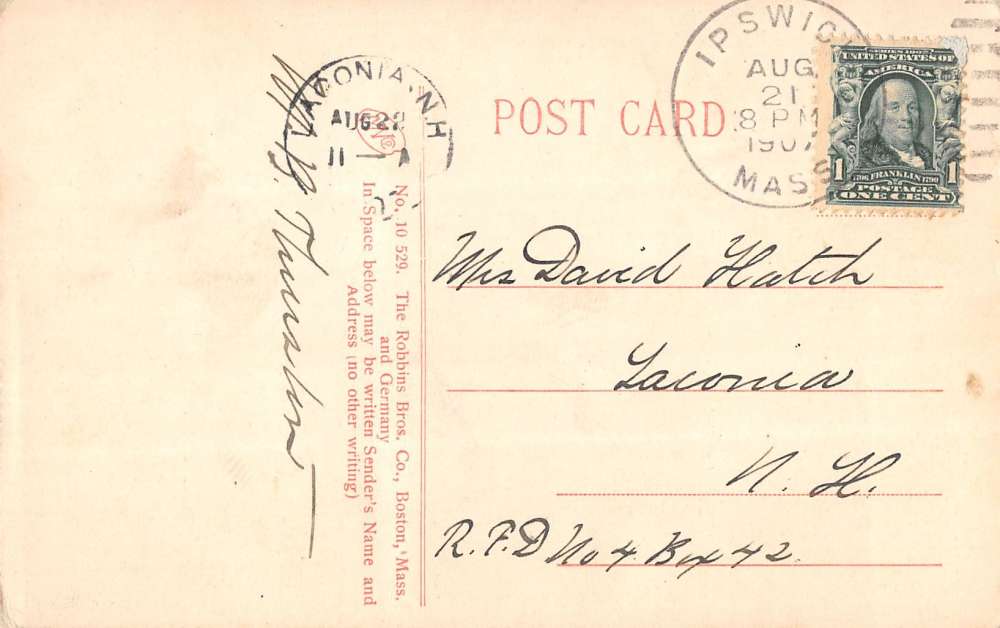 POST CARD
IPSWICH
AUG
21
8 PM
1907
MASS
SERIES 1902
UNITED STATES OF
AMERICA
1706 FRANKLIN 1790
1 1
POSTAGE
ONE CENT
LACONIA, N.H.
AUG 22
11 – A
No. 10 529. The Robbins Bros. Co., Boston, Mass.
and Germany
In Space below may be written Sender's Name and
Address (no other writing)
Mrs David Hatch
Laconia
N. H.
R.F.D No 4 Box 42